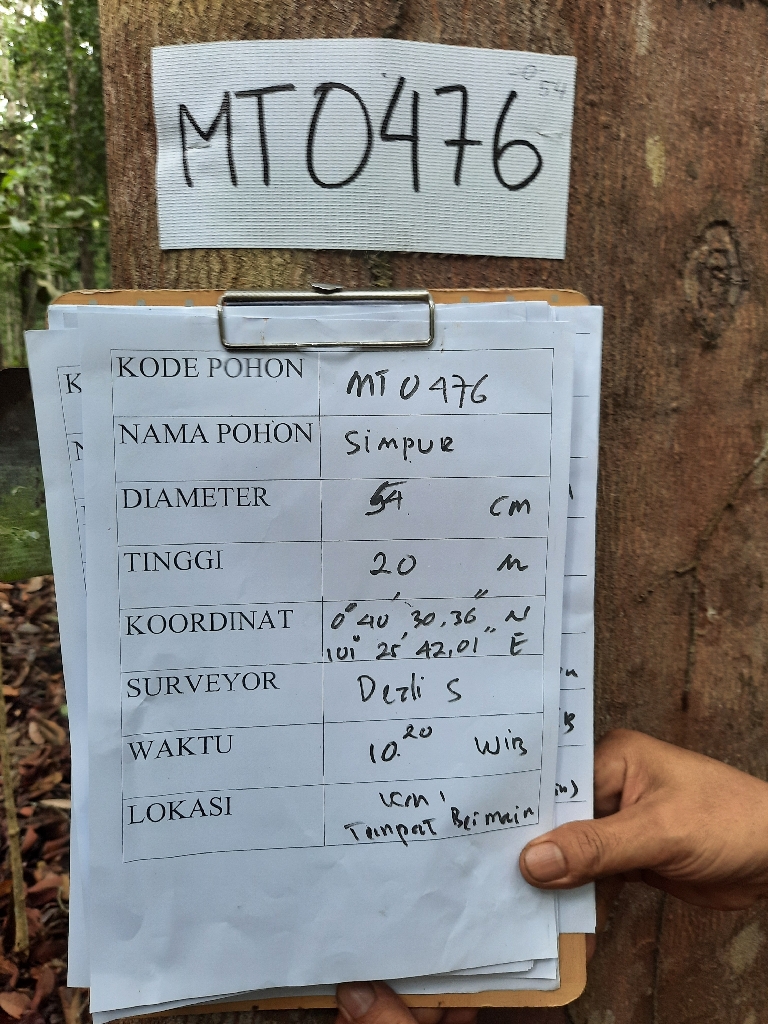 MT0476
54
KODE POHON MT0476
NAMA POHON Simpur
DIAMETER 54 cm
TINGGI 20 m
KOORDINAT 0° 40' 30,36" N
101° 25' 42,01" E
SURVEYOR Dezli S
WAKTU 10.20 WIB
LOKASI Km 1
Tempat Bermain